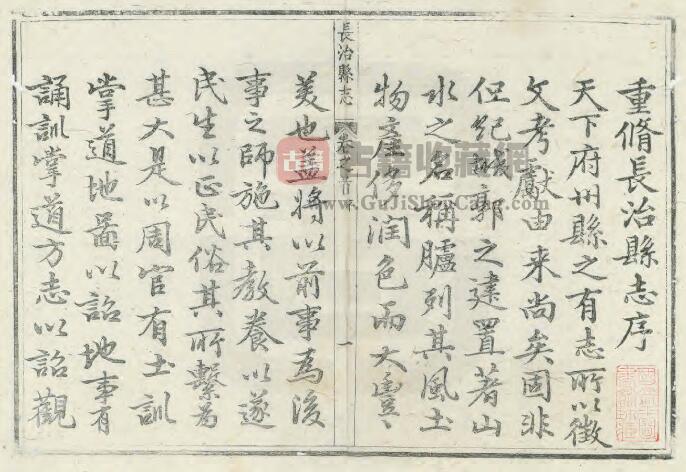 重脩長治縣志序
天下府州縣之有志所以徵
文考獻由来尚矣固非
但紀城郭之建置著山
水之名稱臚列其風土
物產侈潤色而大
長治縣志 卷之首 一
美也蓋將以前事爲後
事之師施其教養以遂
民生以正民俗其所繫爲
甚大是以周官有土訓
掌道地啚以詔地事有
誦訓掌道方志以詔觀
古籍收藏網
www.GuJiShouCang.com